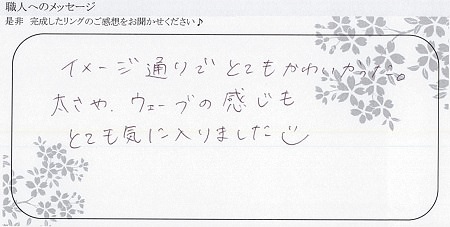 職人へのメッセージ
是非 完成したリングのご感想をお聞かせください♪
イメージ通りでとてもかわいかった。
太さや、ウェーブの感じも
とても気に入りました